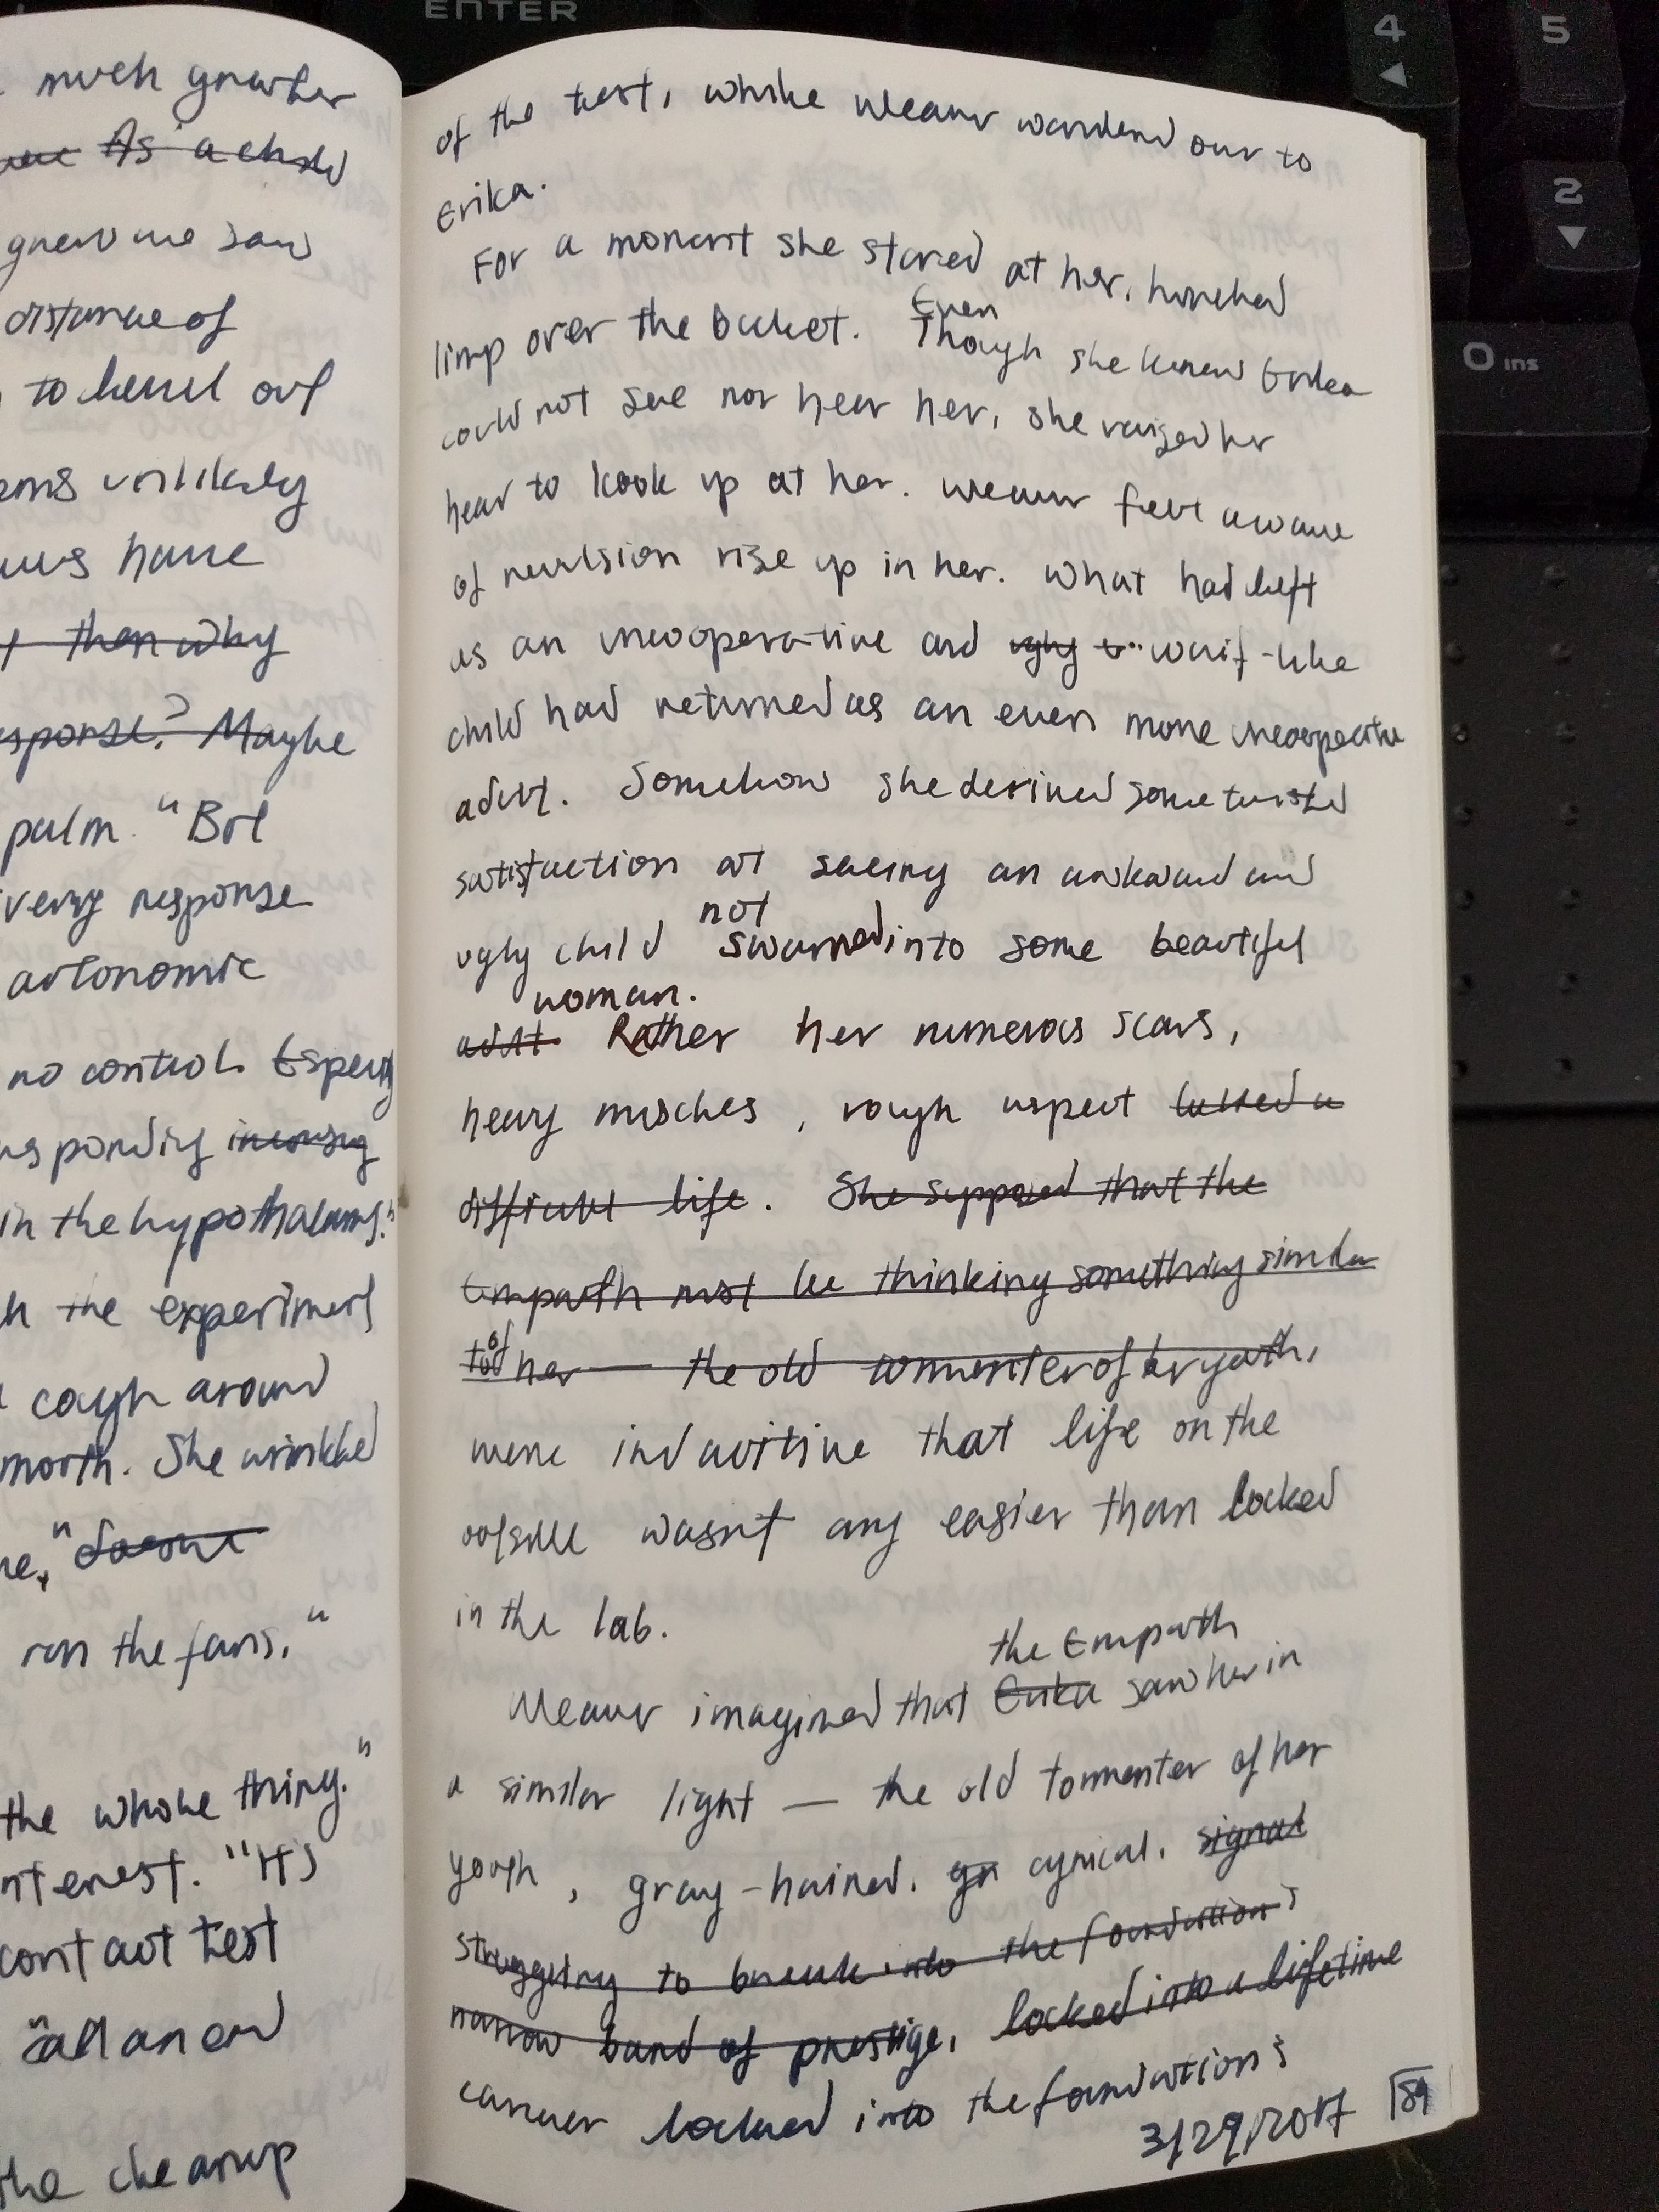 ENTER
4
5
2
0 ins
much
As a child
saw
distance of
to
unlikely
then why
response? Maybe
palm. "But
very response
autonomic
no control.
in the hypothalamus."
the experiment
cough around
mouth. She wrinkled
run the fans."
the whole thing."
interest. "It's
contact test
call an end
the cleanup
of the test, while Weaver wandered over to
Erika.
For a moment she stared at her, hunched
limp over the bucket. Even
Though she knew Erika
could not see nor hear her, she raised her
head to look up at her. Weaver felt a wave
of revulsion rise up in her. What had left
as an uncooperative and ugly waif-like
child had returned as an even more uncooperative
adult. Somehow she derived some twisted
satisfaction at seeing an awkward and
not
ugly child swanned into some beautiful
woman.
adult Rather her numerous scars,
heavy muscles, rough aspect
difficult life. She supposed that the
Empath must be thinking something similar
of
her — the old tormenter of her youth,
were indicitive that life on the
outside wasn't any easier than locked
in the lab.
the Empath
Weaver imagined that Erika saw her in
a similar light — the old tormenter of her
youth, gray-haired, cynical, signal
struggling to break into the foundation's
narrow band of prestige, locked into a lifetime
career locked into the foundation's
3/29/2017 89